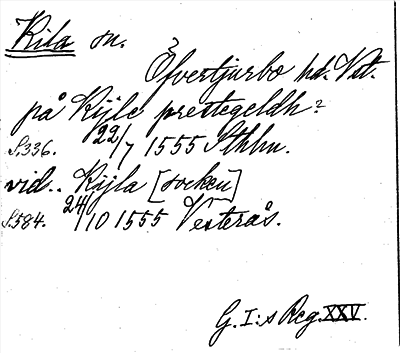 Kila sn.
Öfvertjurbo hd. Vst.
på Kijle prestegeldh?
S.336. 22/7 1555 Sthlm.
vid.. Kijla [socken]
S.584. 24/10 1555 Vesterås.
G. I:s Reg. XXV.